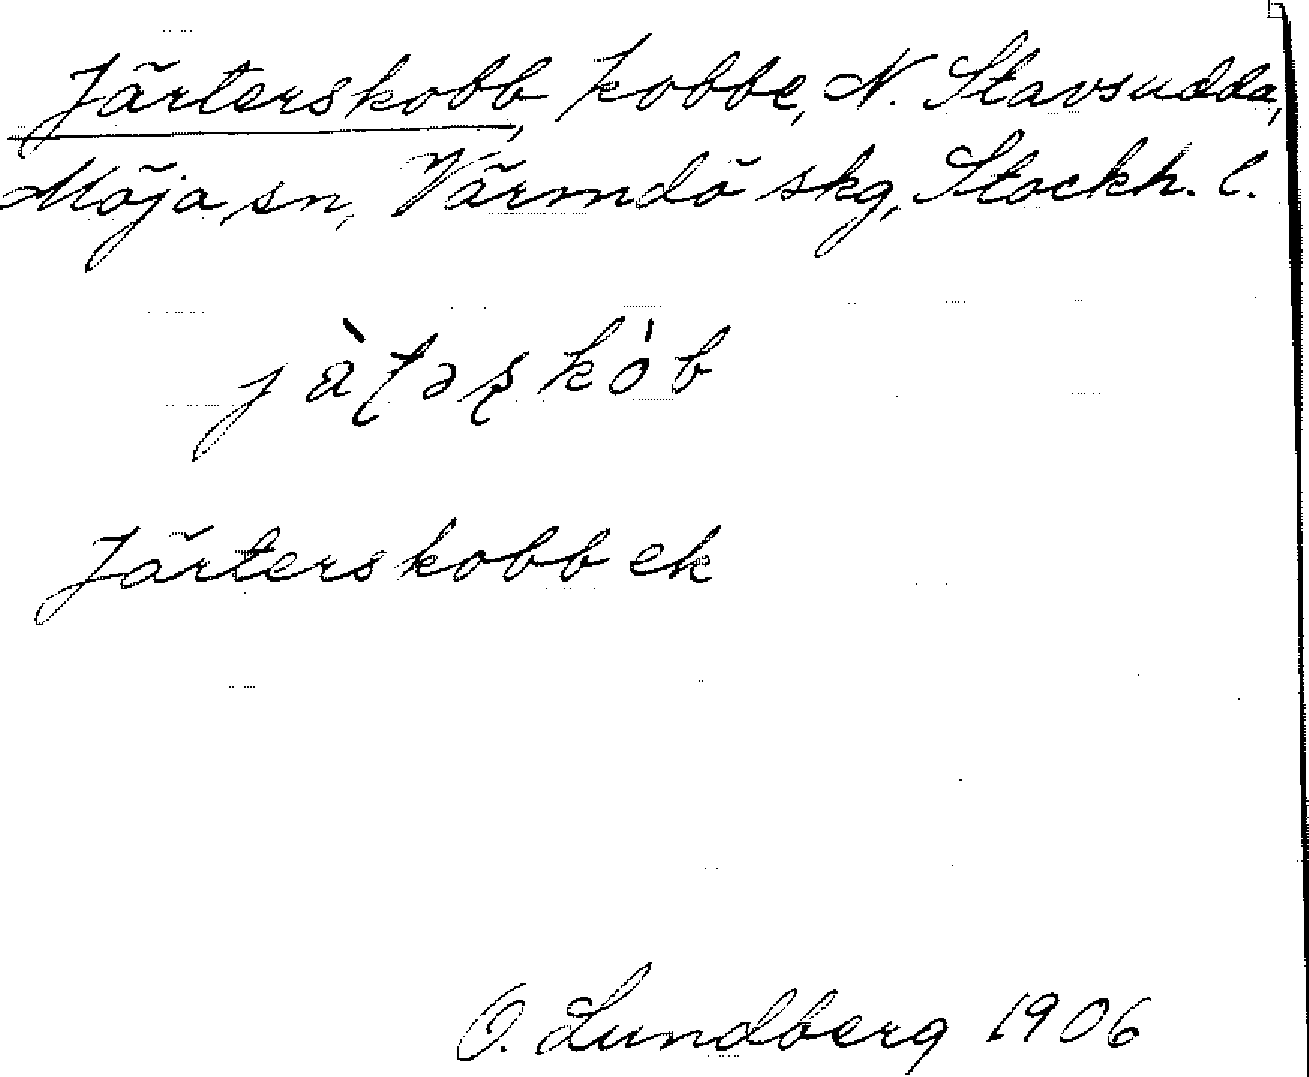 Järterskobb, kobbe, N. Stavsudda,
Möja sn, Värmdö skg, Stockh. l.
jàʈəʂkób
Järterskobb ek
O. Lundberg 1906